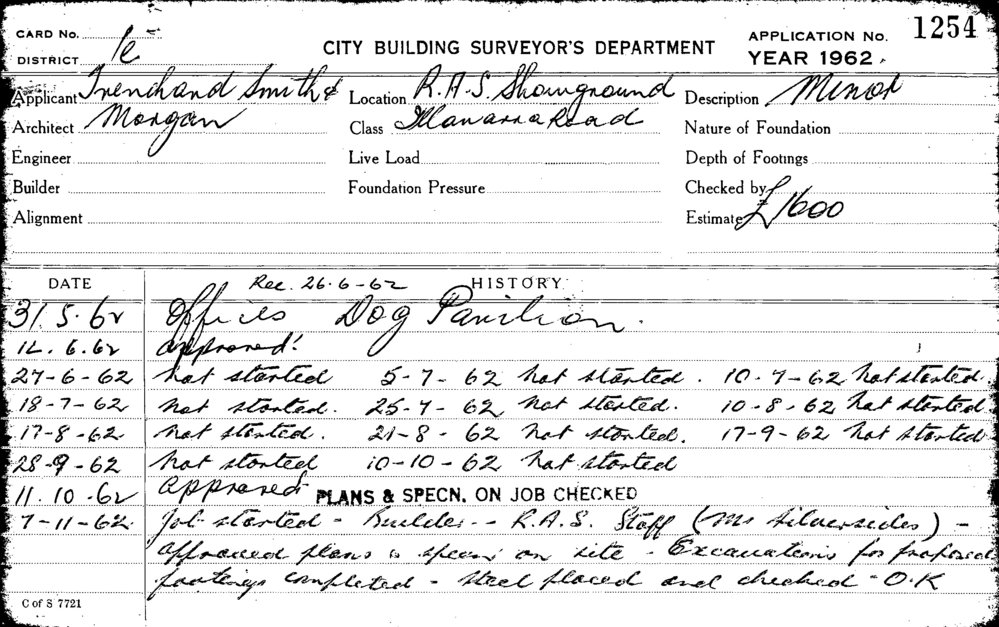 CARD No.
DISTRICT
CITY BUILDING SURVEYOR'S DEPARTMENT
APPLICATION No. 1254
YEAR 1962
Applicant Trenchard Smith & Location R.A.S. Showground Description Minor
Architect Morgan Class Illawarra Road Nature of Foundation
Engineer Live Load Depth of Footings
Builder Foundation Pressure Checked by
Alignment Estimate £1600
DATE Rec. 26-6-62 HISTORY
31.5.62 Offices Dog Pavilion.
12.6.62 approved.
27-6-62 Not started 5-7-62 Not started. 10-7-62 Not started.
18-7-62 Not started. 25-7-62 Not started. 10-8-62 Not started
17-8-62 Not started. 21-8-62 Not started. 17-9-62 Not started
28-9-62 Not started 10-10-62 Not started
11.10.62 Approved PLANS & SPECN. ON JOB CHECKED
7-11-62 Job started - Builder - R.A.S. Staff (Mr Silversides) -
approved plans & specn on site - Excavations for proposed
footings completed - steel placed and checked - O.K
C of S 7721